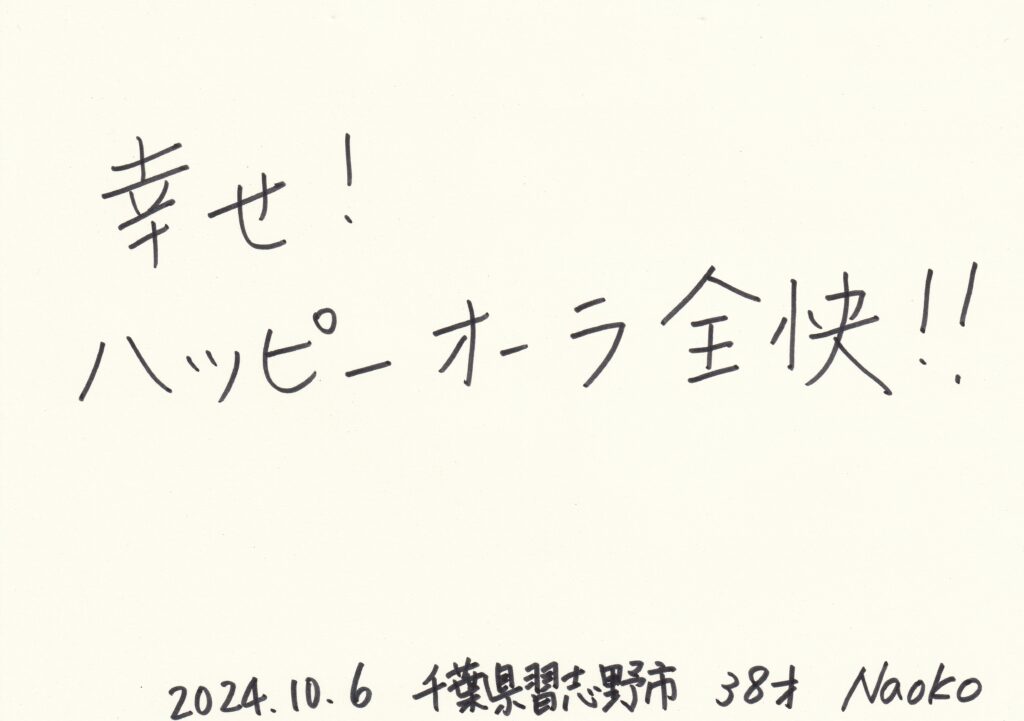 幸せ!
ハッピーオーラ全快!!
2024.10.6 千葉県習志野市 38才 Naoko